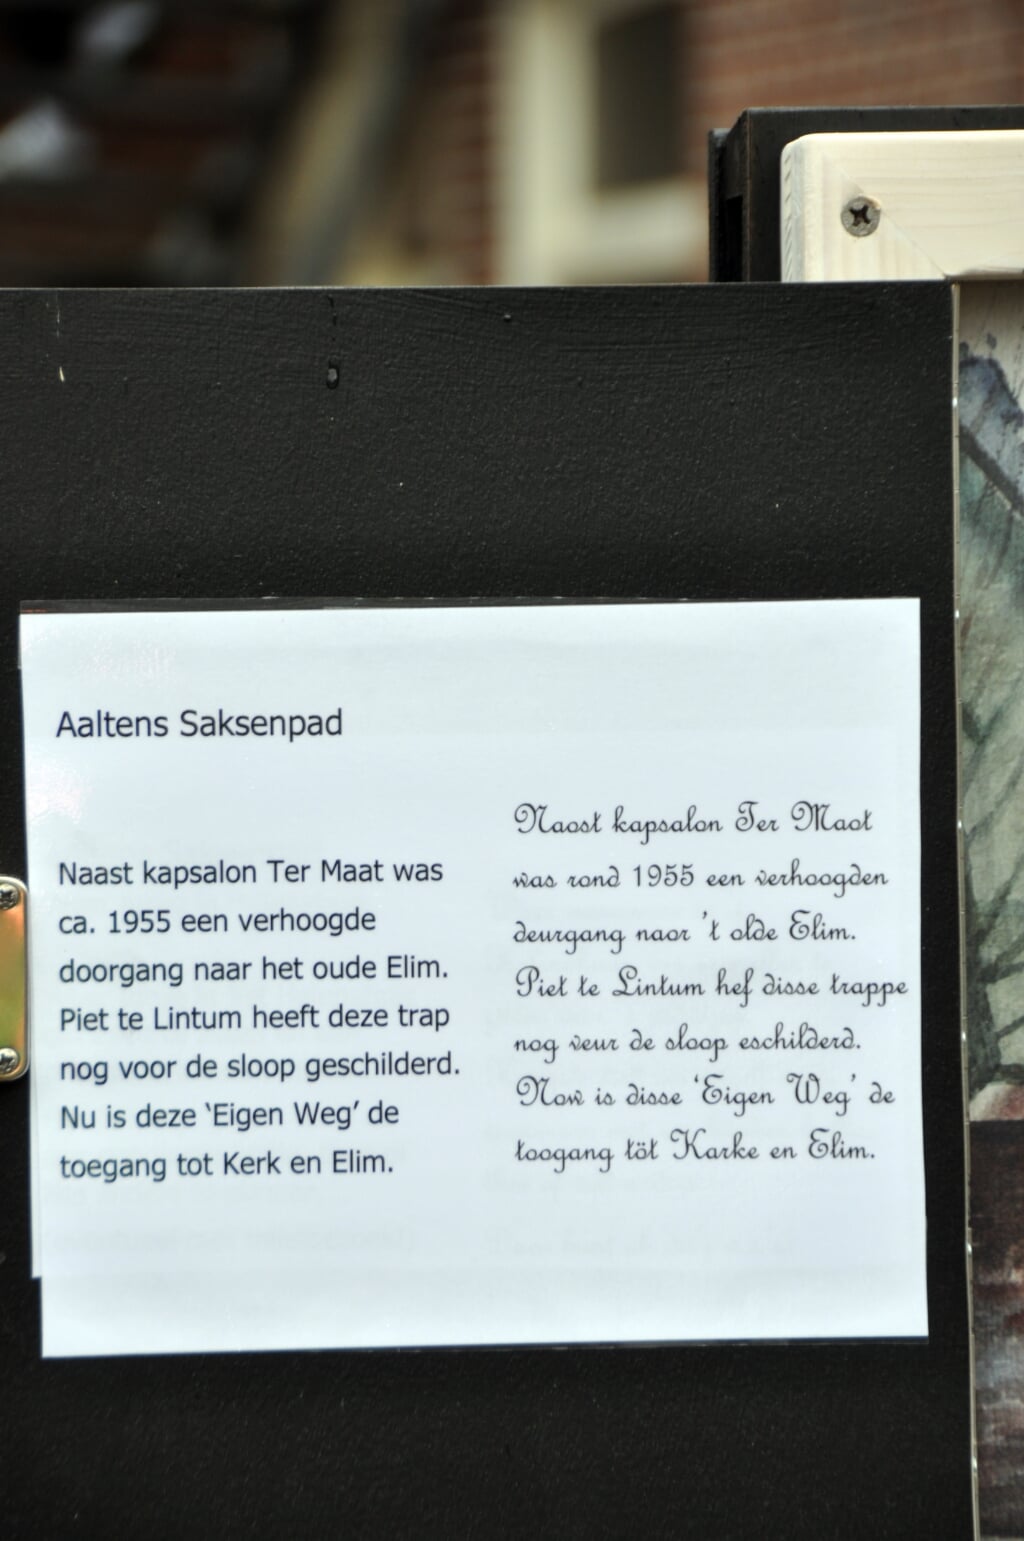 Aaltens Saksenpad
Naast kapsalon Ter Maat was
ca. 1955 een verhoogde
doorgang naar het oude Elim.
Piet te Lintum heeft deze trap
nog voor de sloop geschilderd.
Nu is deze ‘Eigen Weg’ de
toegang tot Kerk en Elim.
Naost kapsalon Ter Maot
was rond 1955 een verhoogden
deurgang naor ’t olde Elim.
Piet te Lintum hef disse trappe
nog veur de sloop eschilderd.
Now is disse ‘Eigen Weg’ de
toogang töt Karke en Elim.